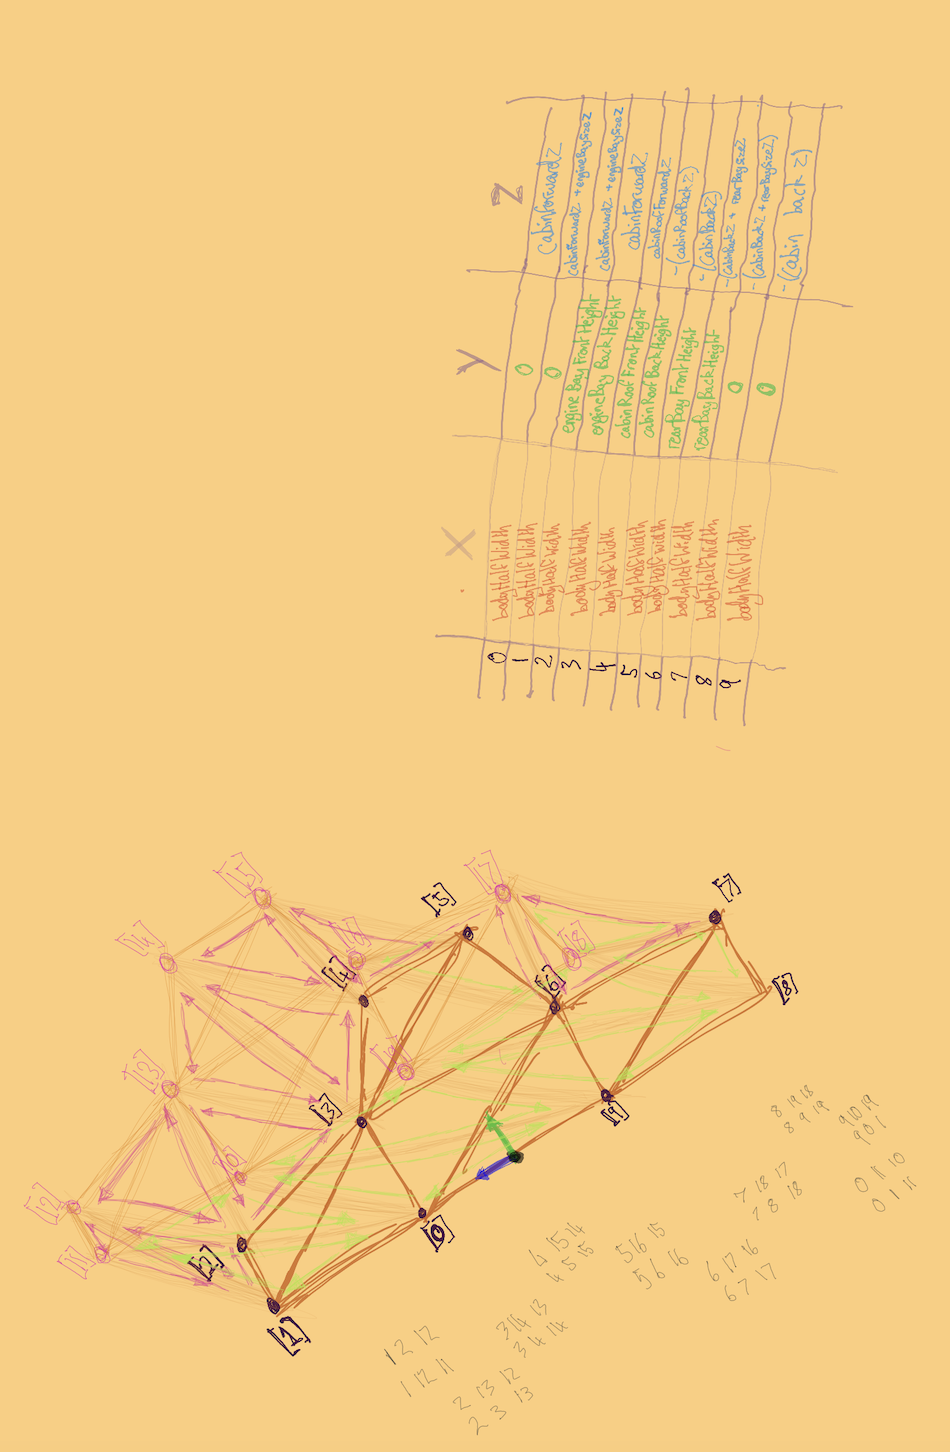 X Y Z
0 bodyHalfWidth 0 cabinForwardZ
1 bodyHalfWidth 0 cabinForwardZ + engineBaySizeZ
2 bodyHalfWidth engine Bay Front Height cabinForwardZ + engineBaySizeZ
3 bodyHalfWidth engineBay Back Height cabinForwardZ
4 bodyHalfWidth cabinRoof Front Height cabinRoofForwardZ
5 bodyHalfWidth cabinRoof Back Height -(cabinRoofBackZ)
6 bodyHalfWidth rearBay Front Height -(CabinBackZ)
7 bodyHalfWidth rearBayBack Height -(CabinBackZ + rearBaySizeZ)
8 bodyHalfWidth 0 -(CabinBackZ + rearBaySizeZ)
9 bodyHalfWidth 0 -(Cabin back Z)
[15]
[17]
[7]
[5]
[14]
[16]
[18]
[4]
[6]
[8]
[13]
[19]
[3]
[9]
[12]
[10]
[0]
[11]
[2]
[1]
8 19 18
8 9 19
9 10 19
9 0 1
7 18 17
7 8 18
0 11 10
0 1 11
4 15 14
4 5 15
5 16 15
5 6 16
6 17 16
6 7 17
3 14 13
3 4 14
1 2 12
1 12 11
2 13 12
2 3 13